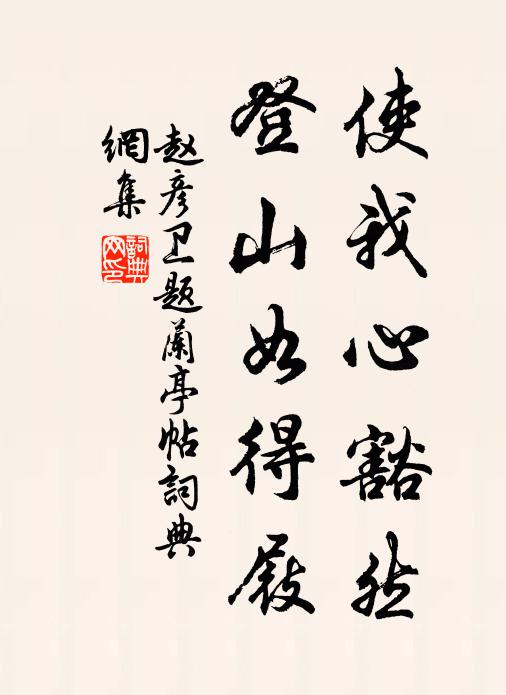 使我心豁然
登山如得屐
赵彦卫题蘭亭帖詞典
網集
詞典网印